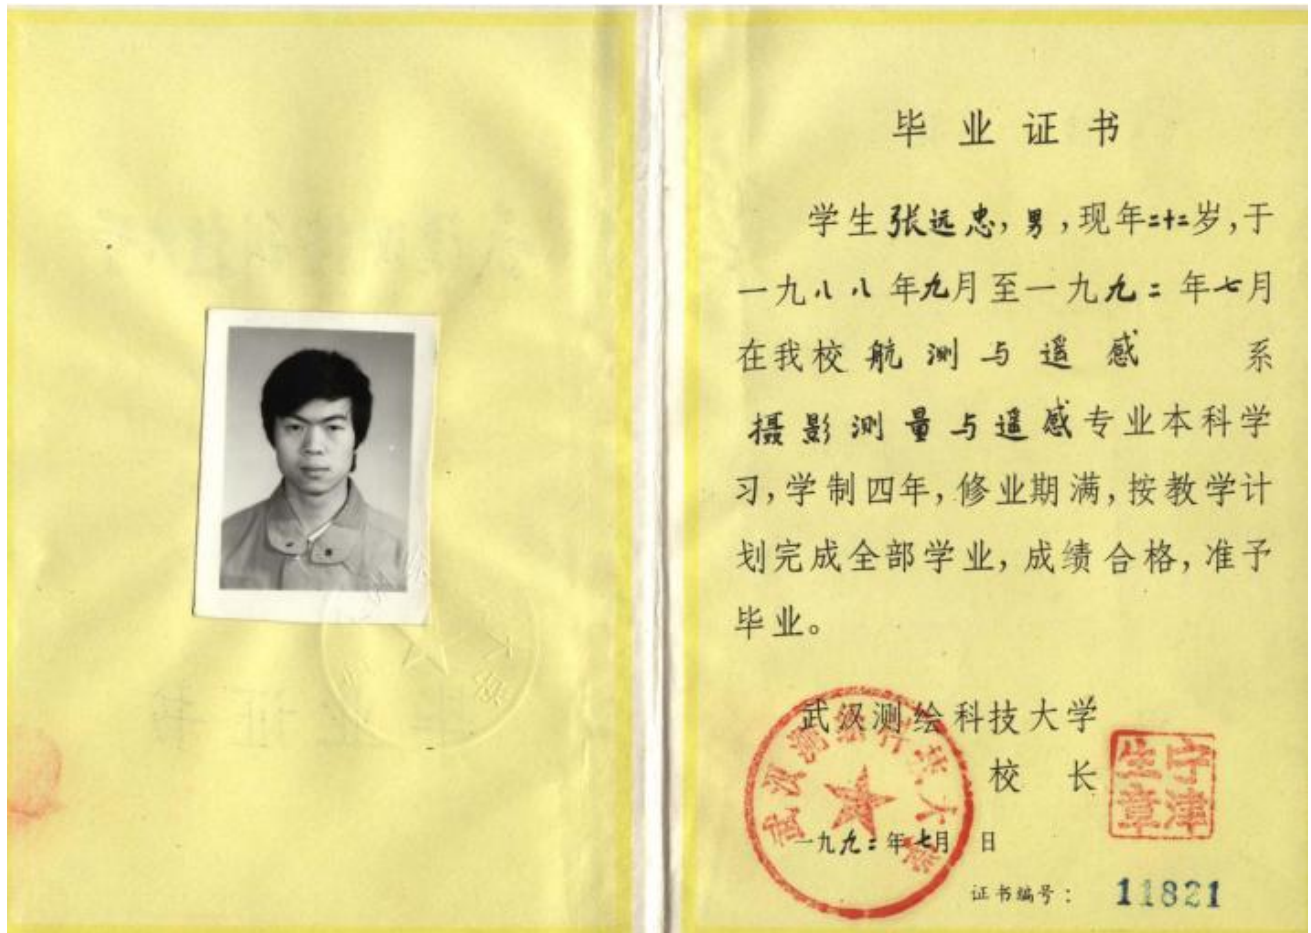 毕业证书
学生张远忠，男，现年二十二岁，于
一九八八年九月至一九九二年七月
在我校航测与遥感 系
摄影测量与遥感专业本科学
习，学制四年，修业期满，按教学计
划完成全部学业，成绩合格，准予
毕业。
武汉测绘科技大学
校 长
宁津生章
武汉测绘科技大学
一九九二年七月 日
证书编号： 11821